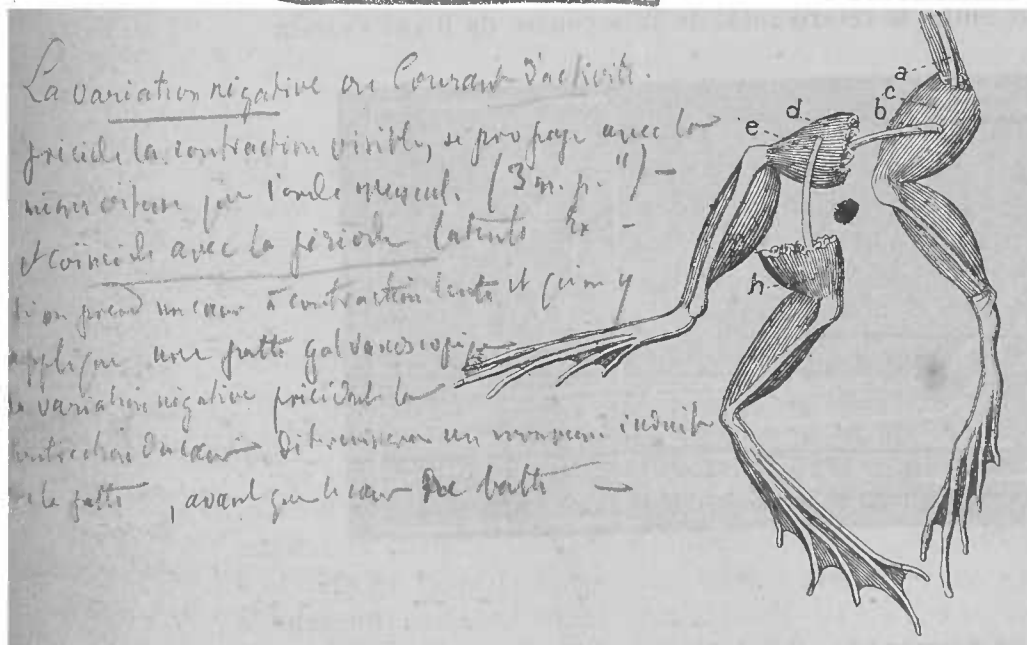 La variation négative ou Courant d'activité.
précède la contraction visible, se propage avec la
même vitesse que l'onde muscul. (3 m. p. ") —
et coïncide avec la période latente Ex —
Si on prend un cœur à contraction lente et qu'on y
applique une patte galvanoscopique
la variation négative précédant la
contraction du cœur déterminera un mouvement induit
de la patte, avant que le cœur ne batte —
a
c
b
d
e
h